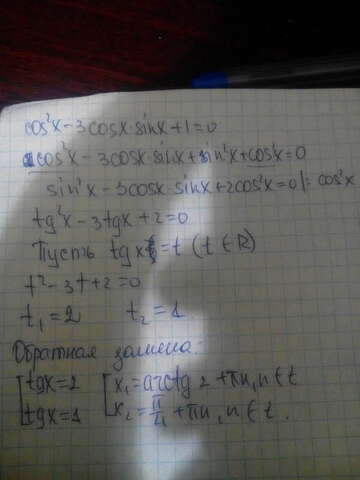 cos²x - 3cosx·sinx + 1 = 0
cos²x - 3cosx·sinx + sin²x + cos²x = 0
sin²x - 3cosx·sinx + 2cos²x = 0 |: cos²x
tg²x - 3tgx + 2 = 0
Пусть tgx = t (t ∈ R)
t² - 3t + 2 = 0
t₁ = 2 t₂ = 1
Обратная замена:
[tgx = 2 [x₁ = arctg 2 + πn, n ∈ t
[tgx = 1 [x₂ = π/4 + πn, n ∈ t.